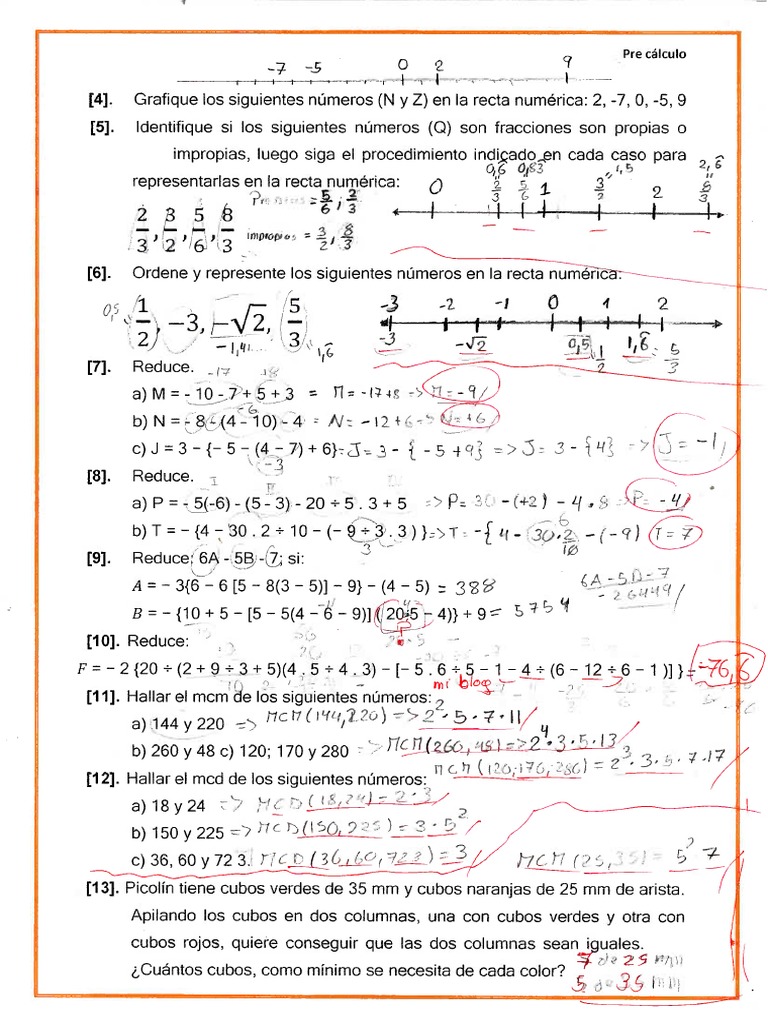 Pre cálculo
-7 -5 0 2 9
[4]. Grafique los siguientes números (N y Z) en la recta numérica: 2, -7, 0, -5, 9
[5]. Identifique si los siguientes números (Q) son fracciones son propias o
impropias, luego siga el procedimiento indicado en cada caso para
representarlas en la recta numérica:
0,6 0,83 = 1,5 2,6
0 2/3 5/6 1 3/2 2 8/3
= 5/6 ; 2/3
2/3, 3/2, 5/6, 8/3 impropias = 3/2, 8/3
[6]. Ordene y represente los siguientes números en la recta numérica:
0,5 1/2, −3, −√2, 5/3
-1,41 1,6
-3 -2 -1 0 1 2
-3 -√2 0,5 1/2 1,6 = 5/3
[7]. Reduce.
-17 +8
a) M = - 10 - 7 + 5 + 3 = M = -17+8 => M = -9
-6
b) N = - 8 - (4 - 10) - 4 = N = -12+6 => N = +6
c) J = 3 - {- 5 - (4 - 7) + 6} = J = 3 - { -5 +9} => J = 3 - {4} => J = -1
-3
[8]. Reduce.
a) P = - 5(-6) - (5 - 3) - 20 ÷ 5 . 3 + 5 => P= 30 -(+2) - 4 . 8 => P= -4
b) T = - {4 - 30 . 2 ÷ 10 - (- 9 ÷ 3 . 3 ) } => T = -{ 4 - 30.2/10 - (-9) T = 7
6
3
[9]. Reduce: 6A - 5B - 7; si:
A = − 3{6 − 6 [5 − 8(3 − 5)] − 9} − (4 − 5) = 388
6A-5B-7
-26449
B = − {10 + 5 − [5 − 5(4 − 6 − 9)] ( 20÷5 − 4)} + 9 = 5754
[10]. Reduce:
F = − 2 {20 ÷ (2 + 9 ÷ 3 + 5)(4 . 5 ÷ 4 . 3) − [− 5 . 6 ÷ 5 − 1 − 4 ÷ (6 − 12 ÷ 6 − 1 )] } = -76,6
mi blog
[11]. Hallar el mcm de los siguientes números:
a) 144 y 220 => MCM(144,220) => 2² · 5 · 7 · 11
b) 260 y 48 c) 120; 170 y 280 => MCM(260,48) => 2⁴ · 3 · 5 · 13
MCM (120,170,280) = 2³ · 3 · 5 · 7 · 17
[12]. Hallar el mcd de los siguientes números:
a) 18 y 24 => MCD(18,24) = 2 · 3
b) 150 y 225 => MCD(150,225) = 3 · 5²
c) 36, 60 y 72 3. MCD(36,60,723) = 3 MCM (25,35) = 5² 7
[13]. Picolín tiene cubos verdes de 35 mm y cubos naranjas de 25 mm de arista.
Apilando los cubos en dos columnas, una con cubos verdes y otra con
cubos rojos, quiere conseguir que las dos columnas sean iguales.
¿Cuántos cubos, como mínimo se necesita de cada color? 7 de 25 mm
5 de 35 mm